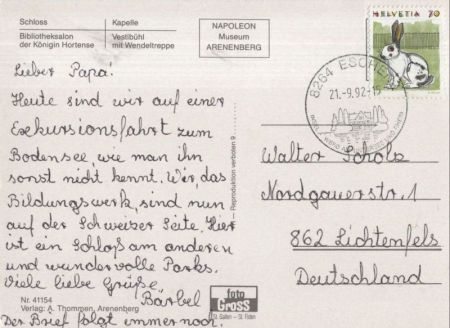 Schloss
Bibliotheksalon
der Königin Hortense
Kapelle
Vestibühl
mit Wendeltreppe
NAPOLEON
Museum
ARENENBERG
HELVETIA 70
8264 ESCHENZ
21.-9.92-
Lieber Papa!
Heute sind wir auf einer
Exkursionsfahrt zum
Bodensee, wie man ihn
sonst nicht kennt. Wir, das
Bildungswerk, sind nun
auf der Schweizer Seite. Hier
ist ein Schloß am anderen
und wundervolle Parks.
Viele liebe Grüße,
Bärbel
Der Brief folgt immer noch.
Walter Scholz
Nordgauerstr. 1
862 Lichtenfels
Deutschland
Reproduktion verboten 9
Nr. 41154
Verlag: A. Thommen, Arenenberg
foto
Gross
St. Gallen - St. Fiden